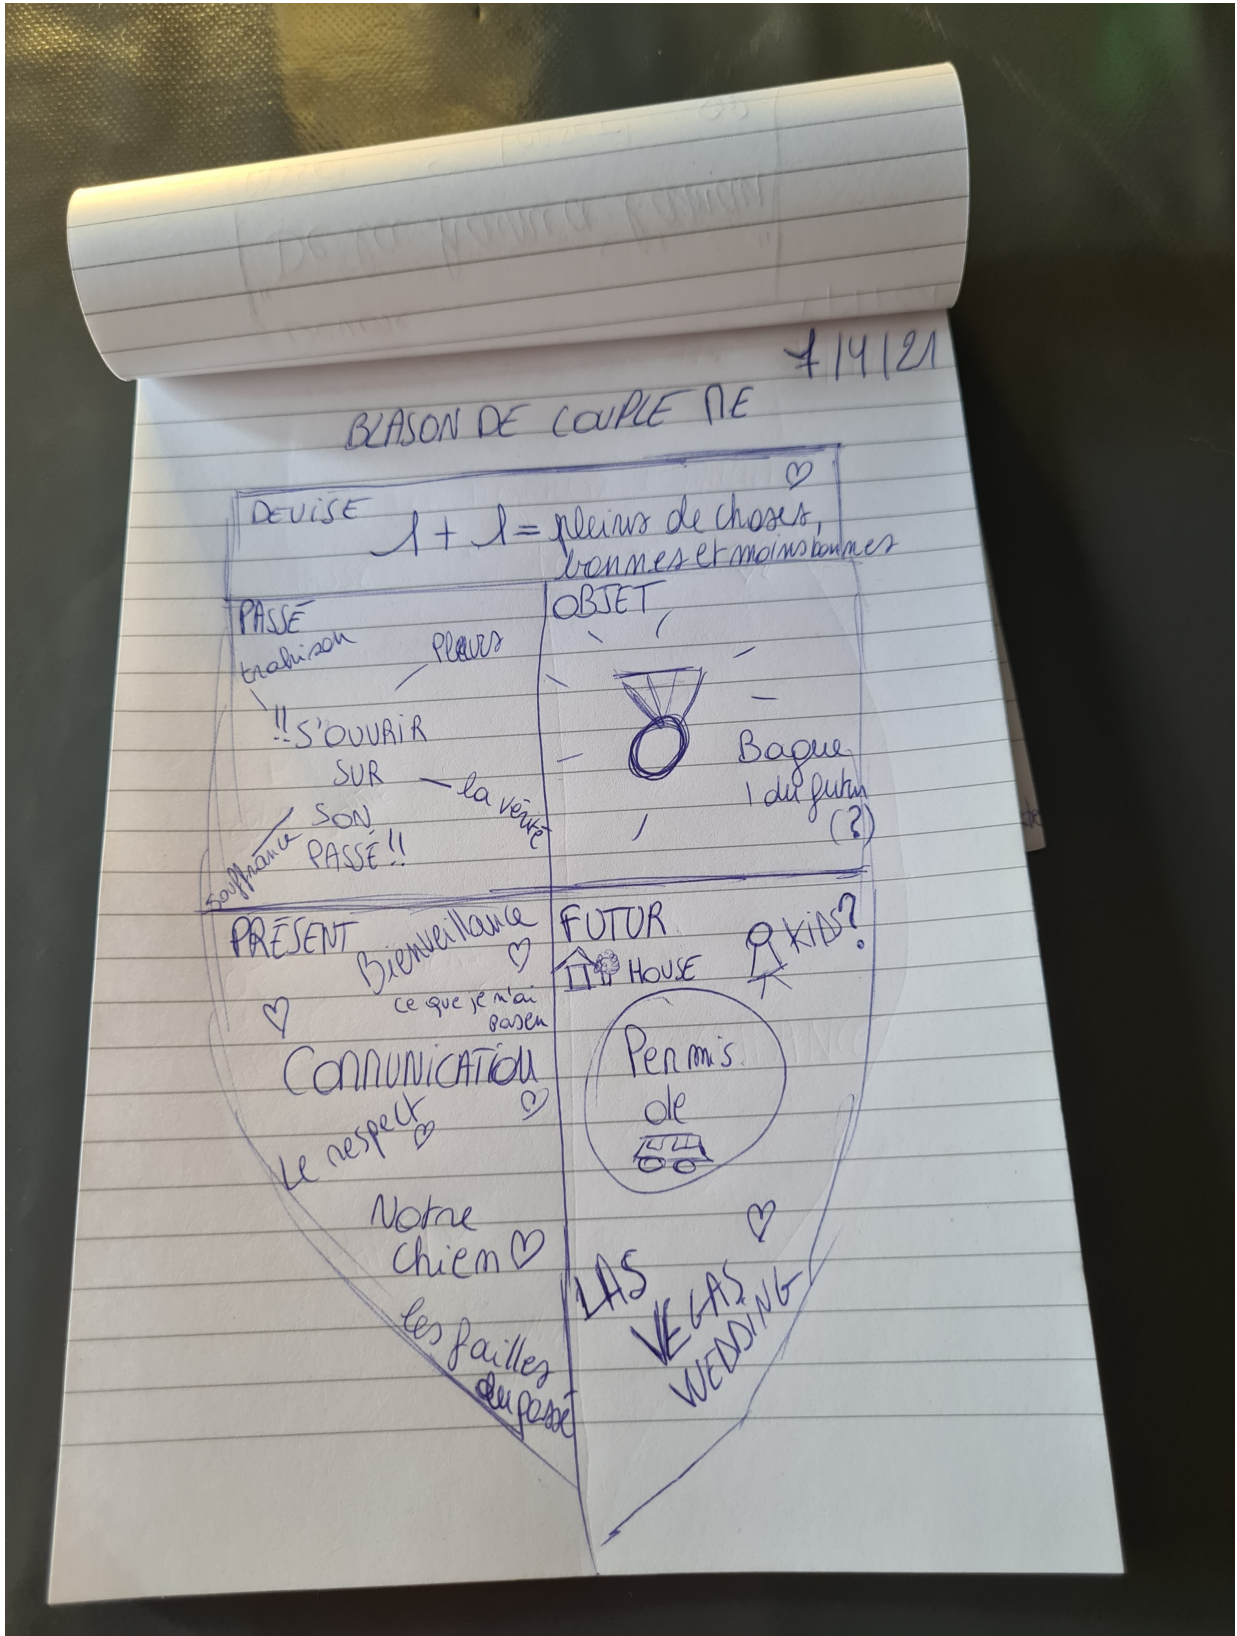 7/4/21
BLASON DE COUPLE ME
DEVISE
1 + 1 = pleins de choses,
bonnes et moins bonnes
PASSÉ
trahison
Pleurs
!! S'OUVRIR
SUR
la vérité
SON
PASSÉ !!
souffrance
OBJET
Bague
du futur
(?)
PRÉSENT
Bienveillance
ce que je n'ai
pas eu
COMMUNICATION
Le respect
Notre
chien
les failles
du passé
FUTUR
HOUSE
KIDS?
Permis
de
LAS
VEGAS
WEDDING